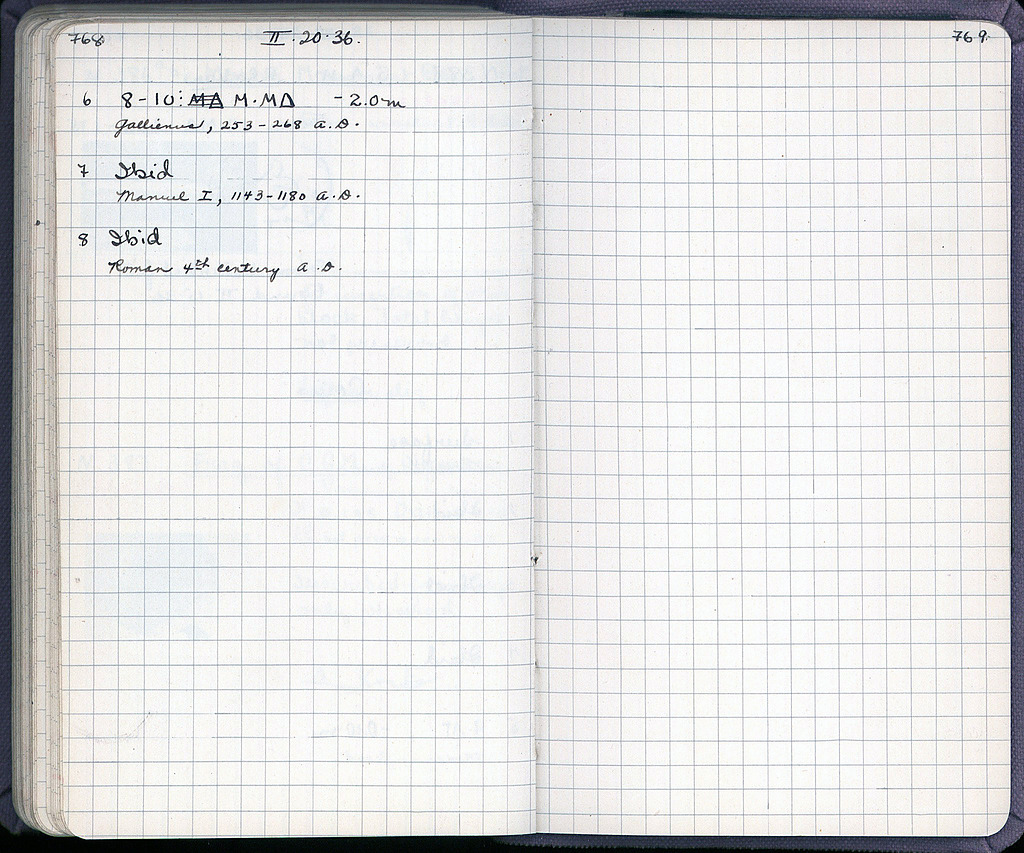 768
II · 20 · 36.
6 8-10: MΔ M·MΔ -2.0m
Gallienus, 253-268 A.D.
7 Ibid
Manuel I, 1143-1180 A.D.
8 Ibid
Roman 4th century A.D.
769